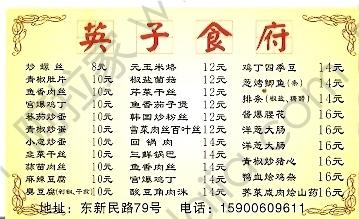 英子食府
炒螺丝 8元
青椒肚片 10元
鱼香肉丝 10元
宫爆鸡丁 10元
蕃茄炒蛋 10元
青椒炒蛋 10元
小葱炒蛋 10元
韭菜干丝 10元
蒜苗肉丝 10元
麻辣豆腐 10元
臭豆腐 10元
元玉米烙 12元
椒盐菌菇 12元
芹菜干丝 12元
鱼香茄子煲 12元
韩国炒粉丝 12元
雪菜肉丝百叶丝 12元
回锅肉 12元
三鲜锅巴 12元
鱼香肉丝 12元
宫爆鸡丁 12元
酸豆角肉沫 12元
鸡丁四季豆 14元
葱烤鲫鱼(条) 14元
排条(椒盐、糖醋) 14元
酱爆腰花 16元
洋葱大肠 16元
洋葱大肠 16元
青椒炒猪心 16元
鸭血烩鸡杂 16元
荠菜咸肉烩山药 16元
地址：东新民路79号 电话：15900609611